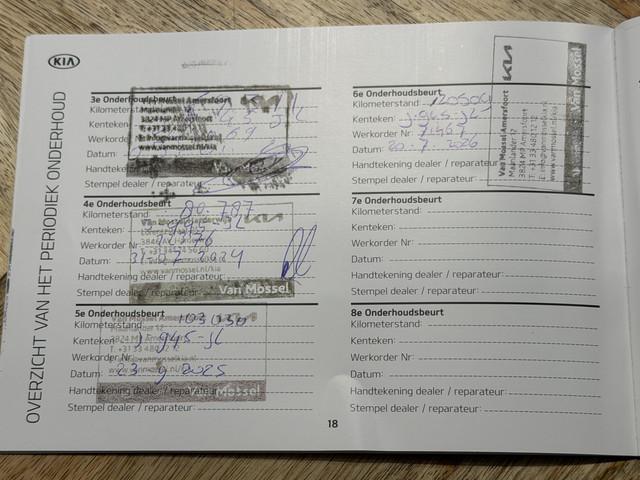 KIA
OVERZICHT VAN HET PERIODIEK ONDERHOUD
3e Onderhoudsbeurt
Kilometerstand
Kenteken:
Werkorder
Datum
Handtekening
Stempel dealer / reparateur:
Van Mossel Amersfoort
3824 MP Amersfoort
www.vanmossel.nl/kia
4e Onderhoudsbeurt
Kilometerstand: 80.787
Kenteken:
Werkorder Nr:
Datum: 31-07-2024
Handtekening dealer / reparateur:
Stempel dealer / reparateur:
www.vanmossel.nl/kia
Van Mossel
5e Onderhoudsbeurt
Kilometerstand: 103030
Kenteken: J-945-JL
Werkorder Nr:
Datum: 23 9 2025
Handtekening dealer / reparateur:
Stempel dealer / reparateur:
Van Mossel Amersfoort
3824 MP Amersfoort
Mossel
6e Onderhoudsbeurt
Kilometerstand: 120504
Kenteken: J-945-JL
Werkorder Nr:
Datum: 20-7-2026
Handtekening dealer / reparateur:
Stempel dealer / reparateur:
KIA
Van Mossel Amersfoort
Maanlander 12
3824 MP Amersfoort
Van Mossel
7e Onderhoudsbeurt
Kilometerstand:
Kenteken:
Werkorder Nr:
Datum:
Handtekening dealer / reparateur:
Stempel dealer / reparateur:
8e Onderhoudsbeurt
Kilometerstand:
Kenteken:
Werkorder Nr:
Datum:
Handtekening dealer / reparateur:
Stempel dealer / reparateur:
18